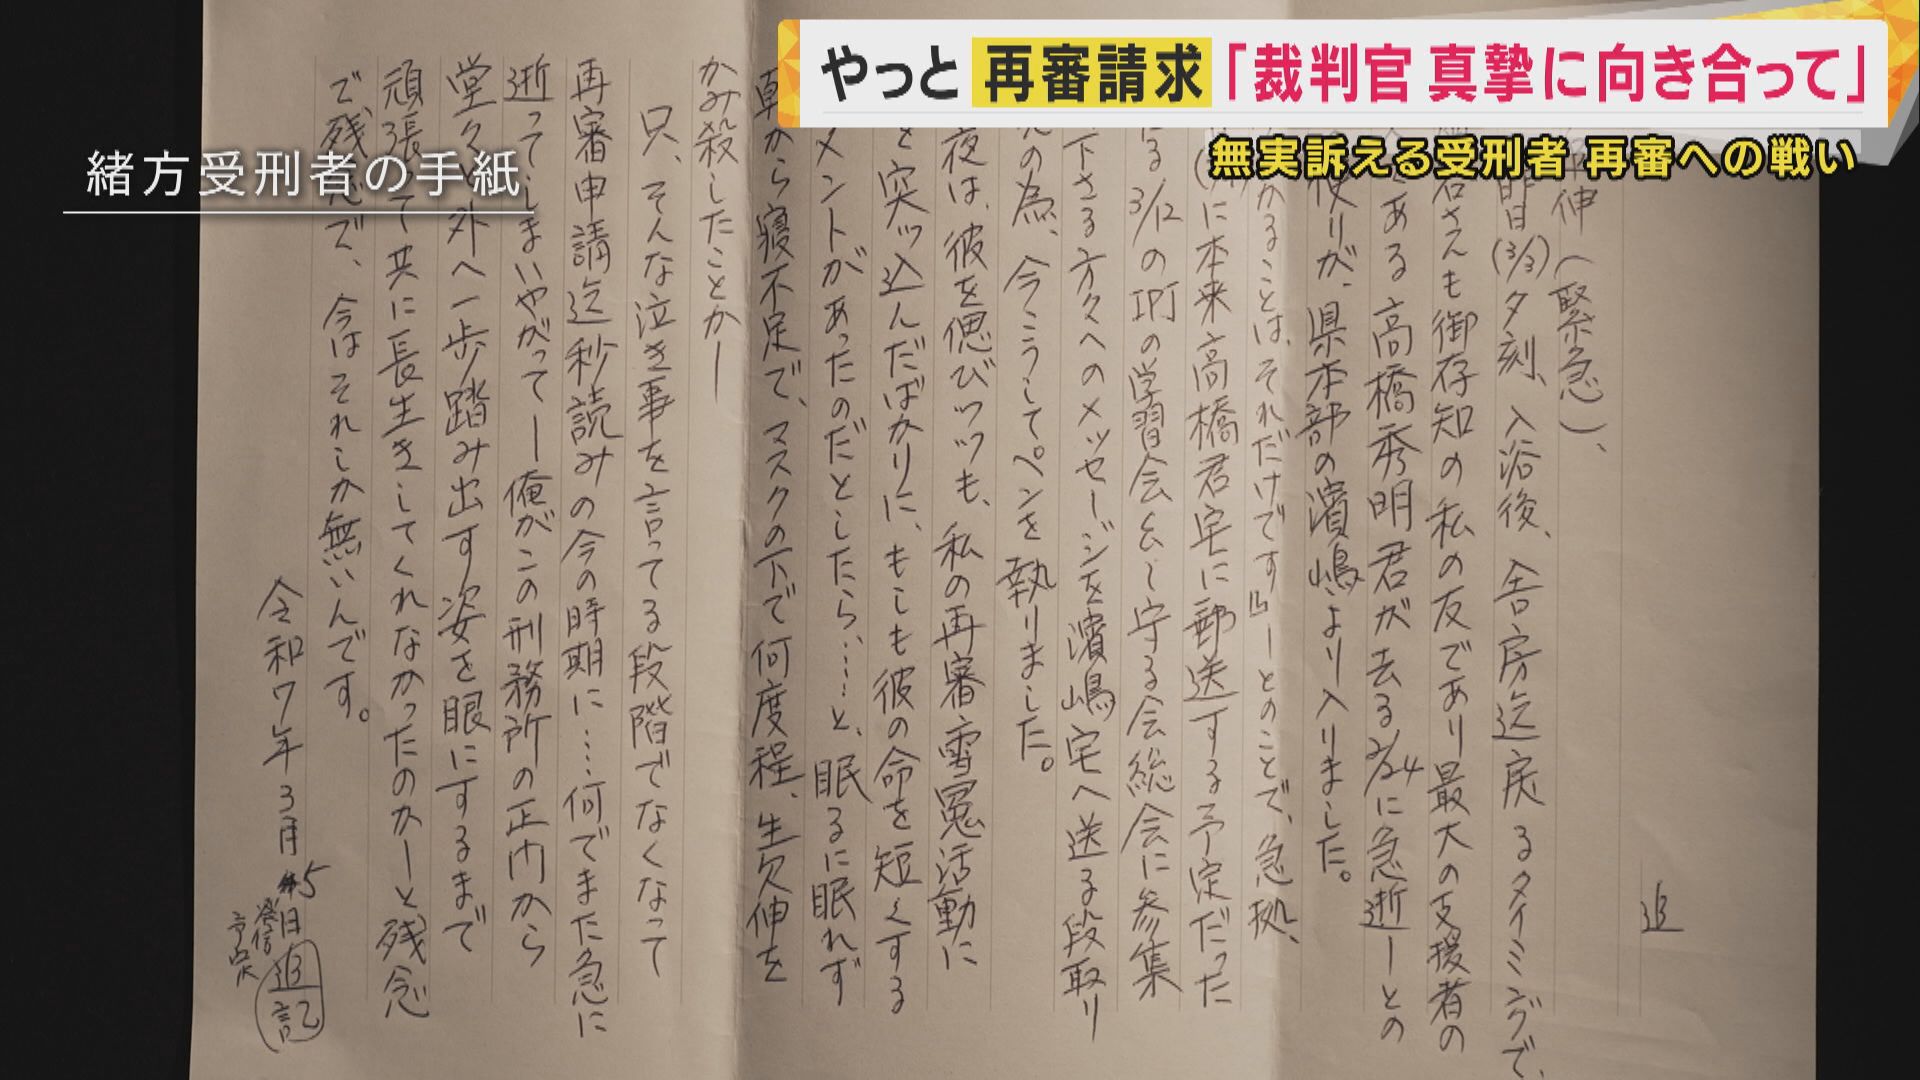 やっと 再審請求「裁判官 真摯に向き合って」
無実訴える受刑者 再審への戦い
緒方受刑者の手紙
追
伸(緊急)、
昨日(3/3)夕刻、入浴後、舎房迄戻るタイミングで、
さんも御存知の私の友であり最大の支援者の
ある高橋秀明君が去る2/24に急逝ーとの
便りが、県本部の濱嶋より入りました。
かることは、それだけです』ーとのことで、急拠、
に本来高橋君宅に郵送する予定だった
る3/12の の学習会 守る会総会に参集
下さる方々へのメッセージを濱嶋宅へ送る段取り
の為、今こうしてペンを執りました。
夜は、彼を偲びツツも、私の再審雪冤活動に
を突ッ込んだばかりに、もしも彼の命を短くする
メントがあったのだとしたら……と、眠るに眠れず
朝から寝不足で、マスクの下で何度程、生欠伸を
かみ殺したことかー
只、そんな泣き事を言ってる段階でなくなって
再審申請迄秒読みの今の時期に…何でまた急に
逝ってしまいやがってー俺がこの刑務所の正門から
堂々と外へ一歩踏み出す姿を眼にするまで
頑張って共に長生きしてくれなかったのかーと残念
で残念で、今はそれしか無いんです。
令和7年3月5日 追記
発信